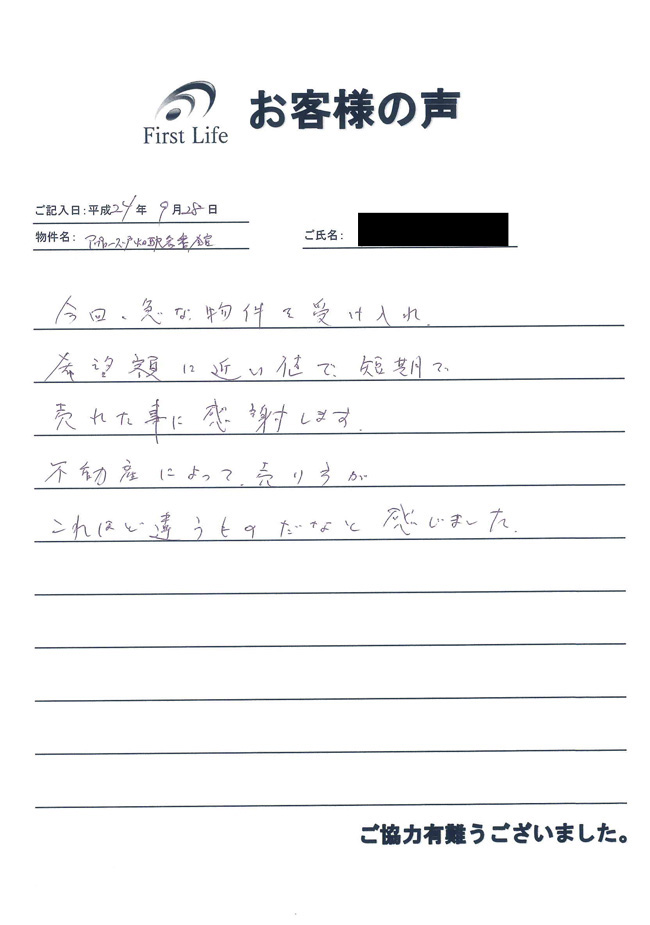 First Life
お客様の声
ご記入日:平成24年 9月28日
物件名:
ご氏名:
今回、急な物件を受け入れ、
希望額に近い値で、短期で
売れた事に感謝します。
不動産によって、売り方が
これほど違うものだなと感じました。
ご協力有難うございました。